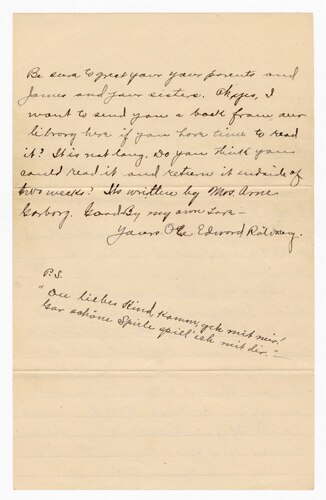 Be sure to greet your your parents and
James and your sisters. I
want to send you a book from our
library here if you have time to read
it? It is not long. Do you think you
could read it and return it inside of
two weeks? Its written by Mrs. Arne
Garborg. Good By my own Lora –
Yours Ole Edward
P.S.
"Ou liebes Kind, komm, geh mit mir!
Gar schöne Spiele spiel' ich mit dir."